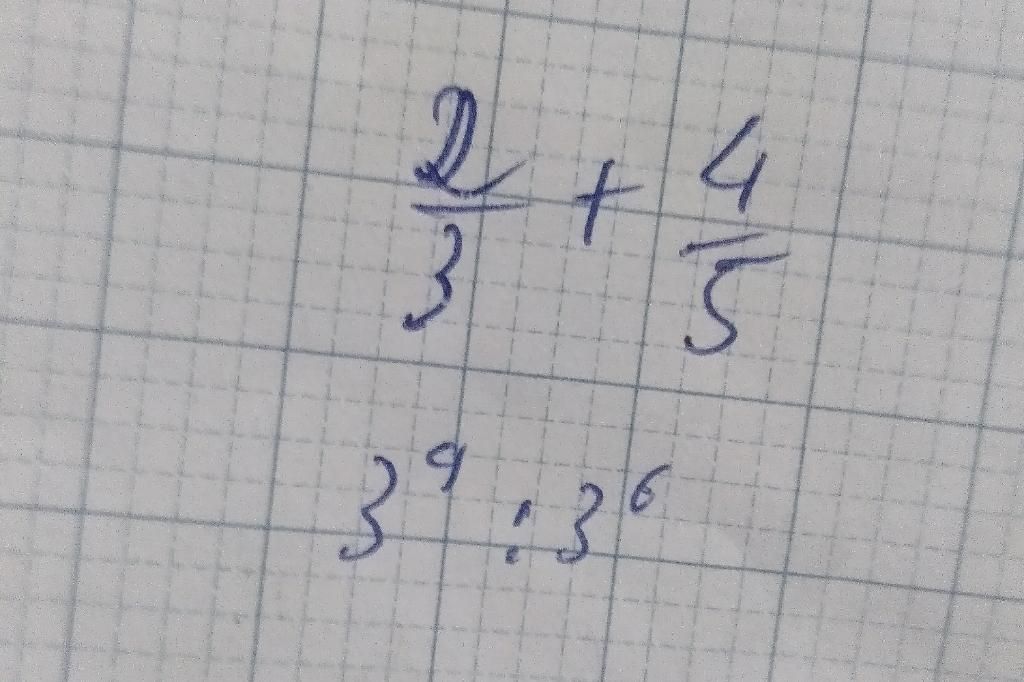 2/3 + 4/5
3⁹ : 3⁶